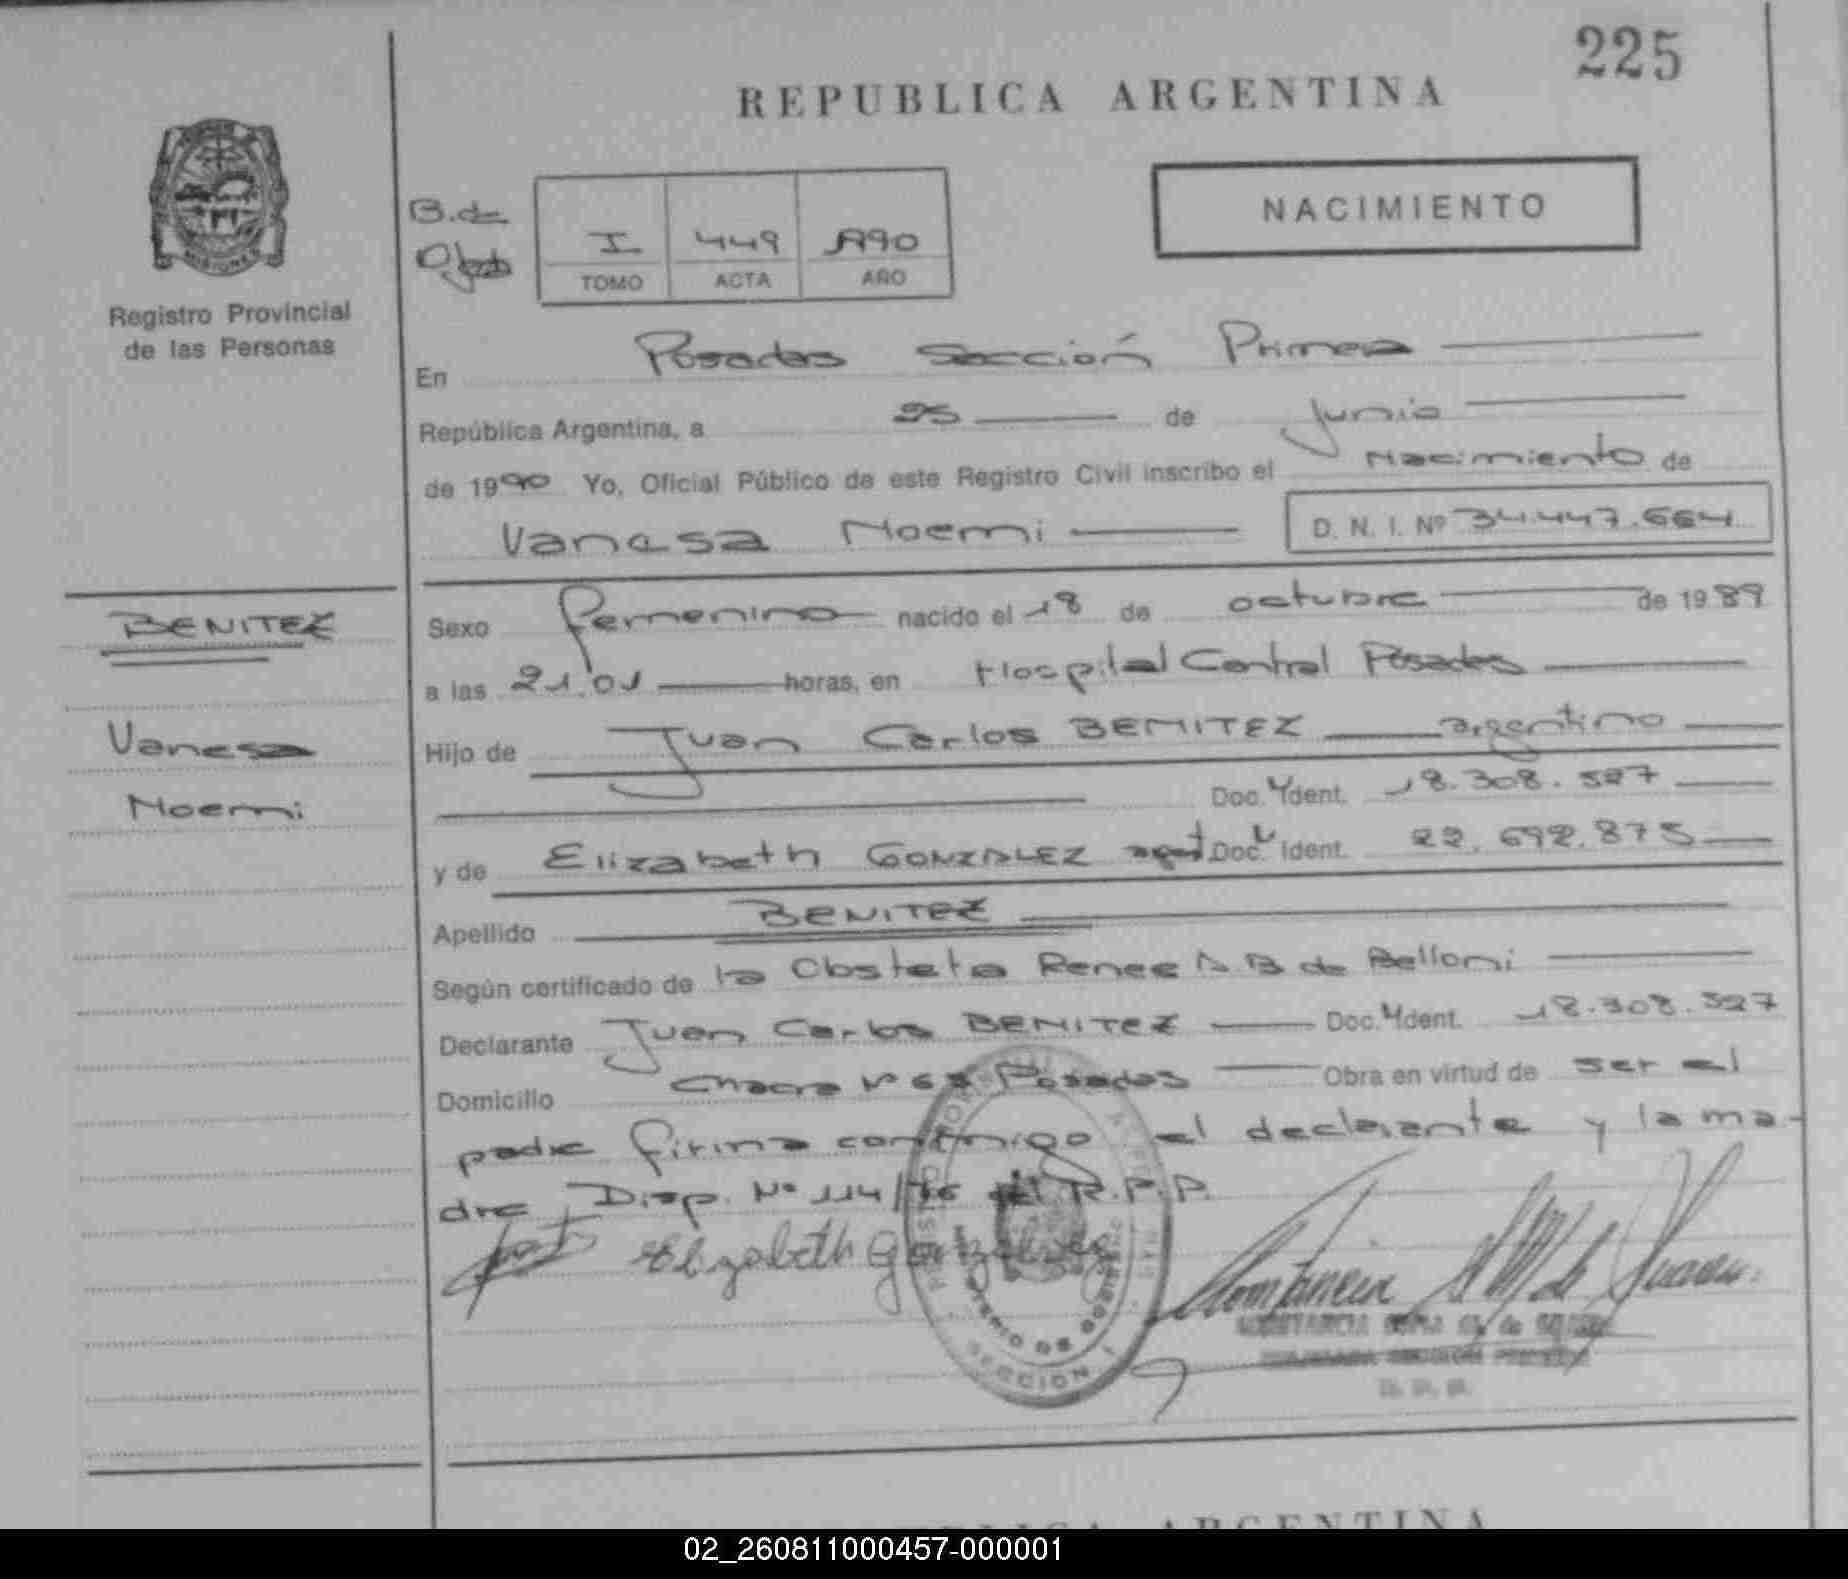 225
REPUBLICA ARGENTINA
NACIMIENTO
B. de
I 449 1990
TOMO ACTA AÑO
MISIONES
Registro Provincial
de las Personas
En Posadas Sección Primera
República Argentina, a 25 de Junio
de 1990 Yo, Oficial Público de este Registro Civil inscribo el Nacimiento de
Vanesa Noemi D. N. I. Nº 34.447.664
BENITEZ
Vanesa
Noemi
Sexo femenino nacido el 18 de octubre de 1989
a las 21.01 horas, en Hospital Central Posadas
Hijo de Juan Carlos BENITEZ argentino
Doc. Ident. 18.308.527
y de Elizabeth GONZALEZ argent Doc. Ident. 22.692.875
Apellido BENITEZ
Según certificado de la Obsteta Renee N. B de Belloni
Declarante Juan Carlos BENITEZ Doc. Ident. 18.308.527
Domicilio Chacra Nº Posadas Obra en virtud de ser el
padre firma conmigo el declarante y la ma-
dre Disp. Nº 114/76 R.P.P.
Elizabeth González
SECCION 1
02_260811000457-000001